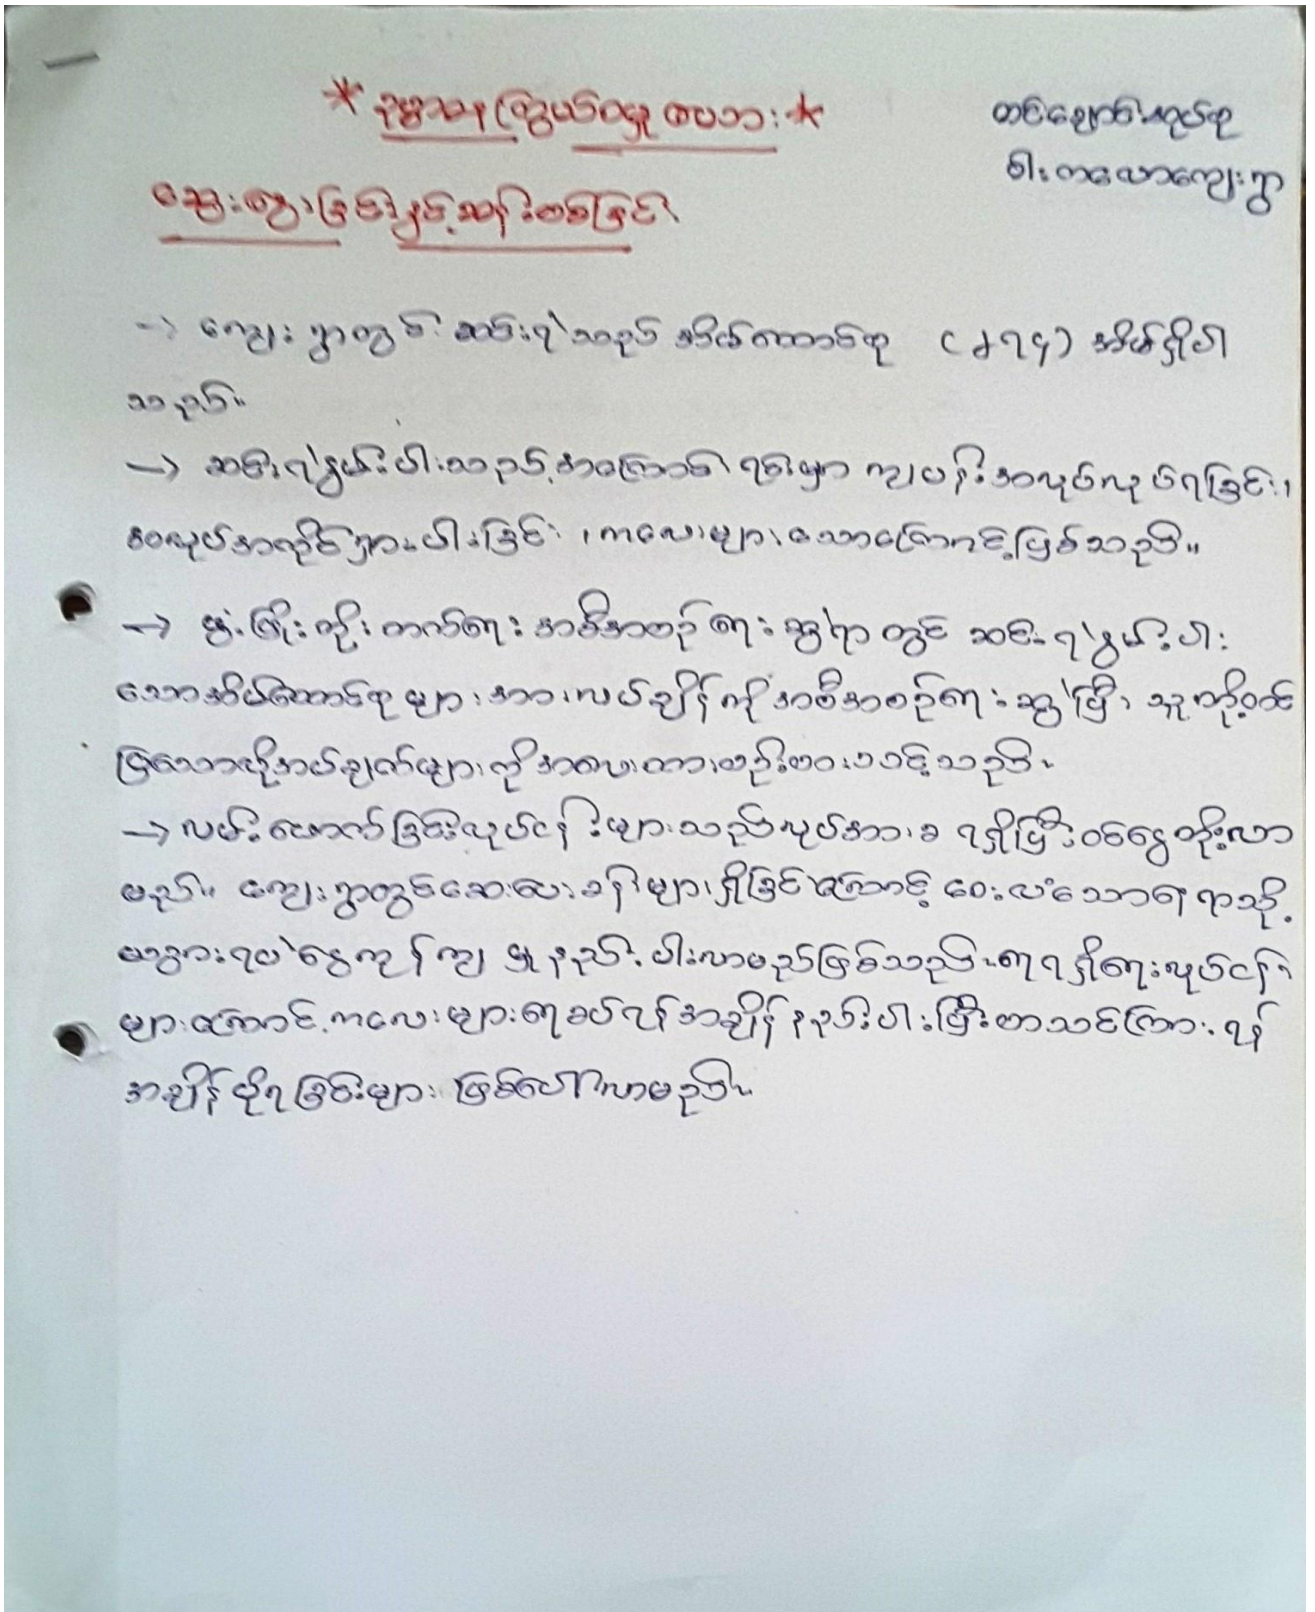 * ဥစ္စာဓန ကြွယ်ဝမှု ဇယား *
တင်ချောင်းအုပ်စု
ဝါးကလောကျေးရွာ
ဆွေးနွေးခြင်းနှင့်ဆန်းစစ်ခြင်း
→ ကျေးရွာတွင် ဆင်းရဲသည့် အိမ်ထောင်စု ( အိမ်ရှိပါ
သည်။
→ ဆင်းရဲနွမ်းပါးသည့်အကြောင်းရင်းမှာ ကျပန်းအလုပ်လုပ်ရခြင်း၊
အလုပ်အကိုင်ရှားပါးခြင်း ၊ ကလေးများသောကြောင့်ဖြစ်သည်။
→ ဖွံ့ဖြိုးတိုးတက်ရေး အစီအစဉ် ရေးဆွဲရာတွင် ဆင်းရဲနွမ်းပါး
သောအိမ်ထောင်စုများအားလပ်ချိန်ကိုအစီအစဉ်ရေးဆွဲပြီး သူတို့တင်
ပြသောလိုအပ်ချက်များကိုအလေးထားစဉ်းစားသင့်သည်။
→ လမ်းဖောက်ခြင်းလုပ်ငန်းများသည်လုပ်အားခ ရရှိပြီးဝင်ငွေတိုးလာ
မည်။ ကျေးရွာတွင်ဆေးပေးခန်းများရှိခြင်းကြောင့် ဝေးလံသောနေရာသို့
မသွားရပဲငွေကုန်ကျမှုနည်းပါးလာမည်ဖြစ်သည်။ရေရရှိရေးလုပ်ငန်း
များကြောင့်ကလေးများရေခပ်ရန်အချိန်နည်းပါးပြီးစာသင်ကြားရန်
အချိန်ပိုရခြင်းများ ဖြစ်ပေါ်လာမည်။